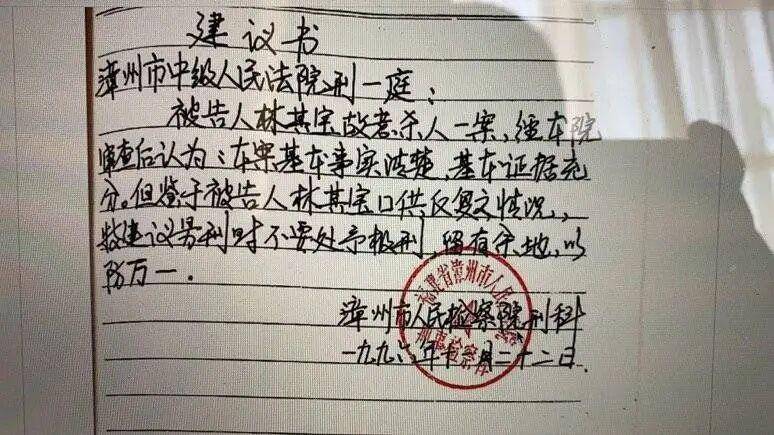 建议书
漳州市中级人民法院刑一庭：
被告人林其宝故意杀人一案，经本院
审查后认为：本案基本事实清楚，基本证据充
分。但鉴于被告人林其宝口供反复之情况，
故建议量刑时不要处予极刑，留有余地，以
防万一．
漳州市人民检察院刑科
一九九六年月二十二日．
福建省漳州市人民
检察